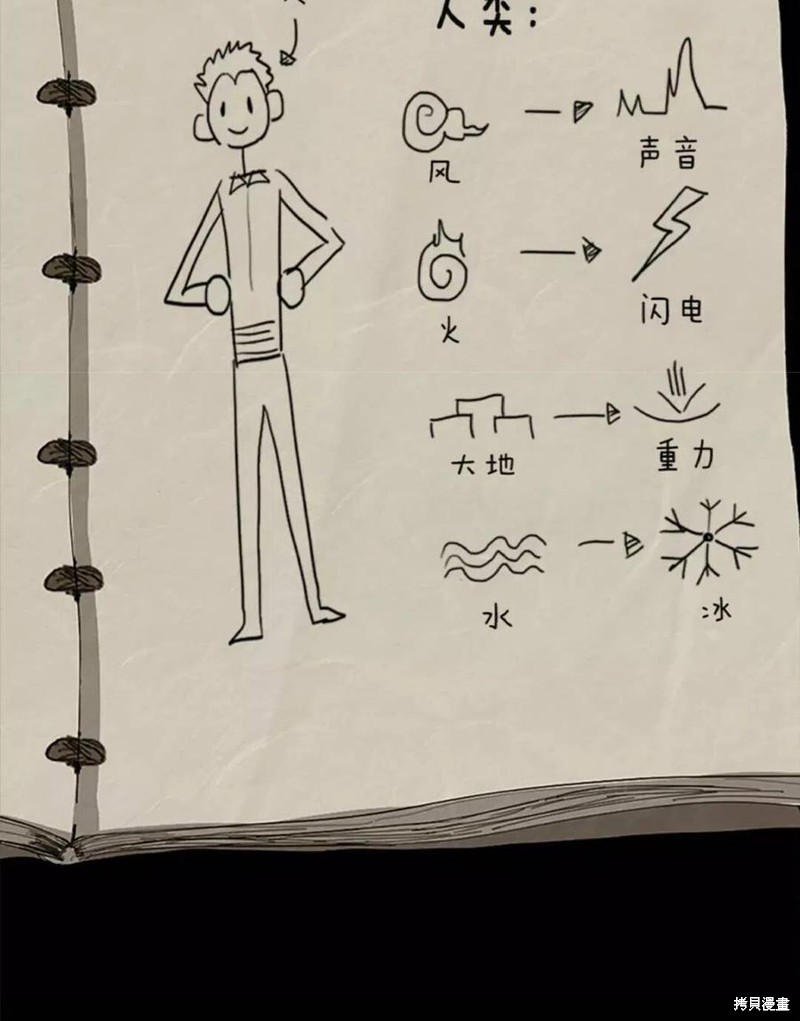 人类:
风
声音
火
闪电
大地
重力
水
冰
拷貝漫畫